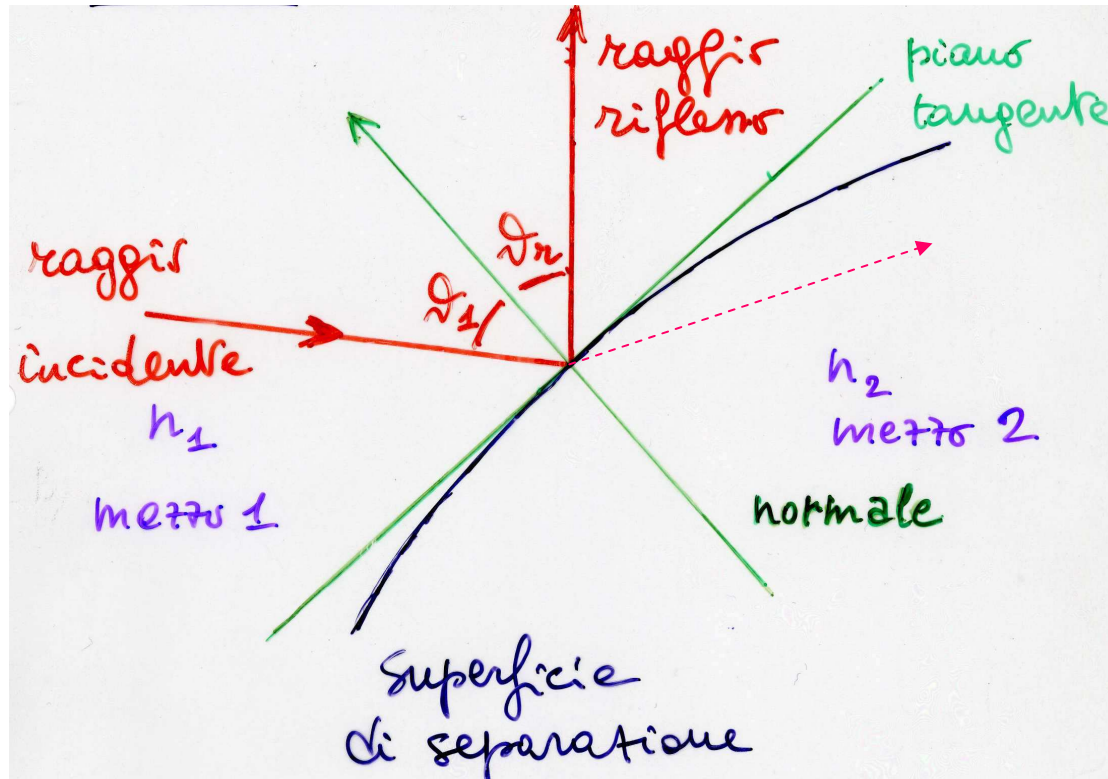 raggio
riflesso
piano
tangente
ϑr
raggio
ϑ1
incidente
n1
mezzo 1
n2
mezzo 2
normale
superficie
di separazione